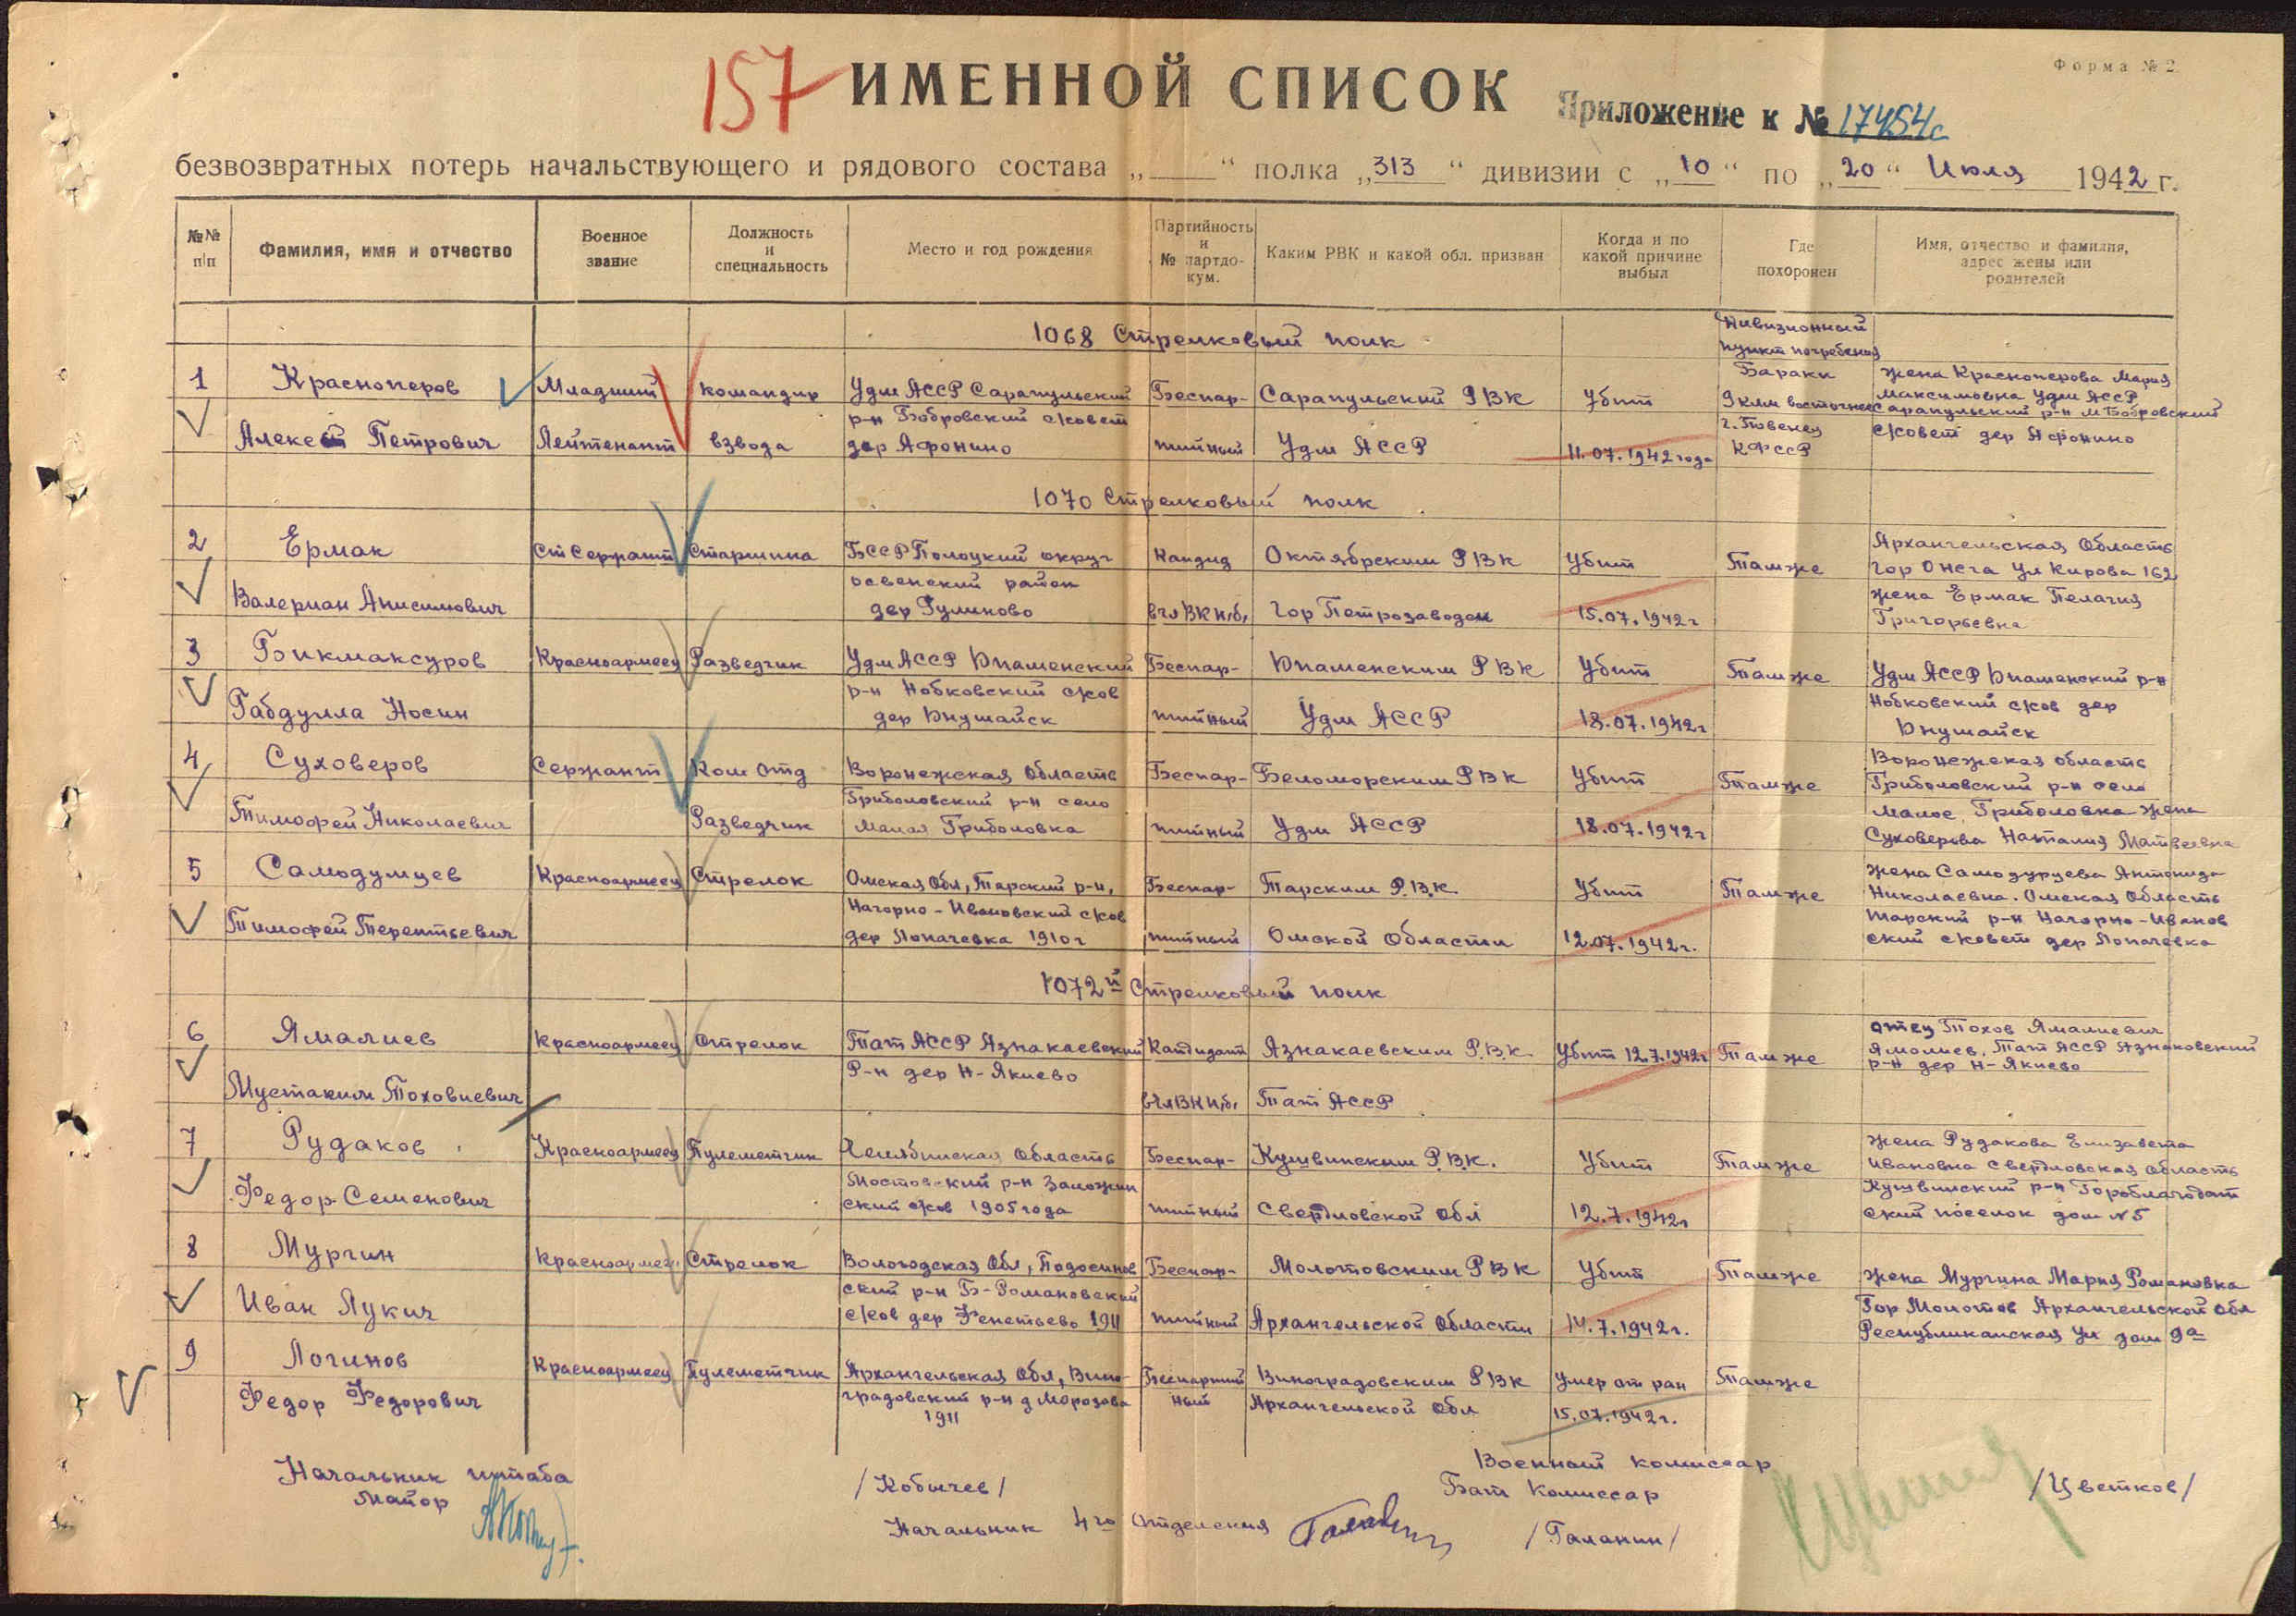 Форма № 2
157 ИМЕННОЙ СПИСОК Приложение к № 17454с
безвозвратных потерь начальствующего и рядового состава „ “ полка „313“ дивизии с „10“ по „20“ Июля 1942 г.
№№ п/п
Фамилия, имя и отчество
Военное звание
Должность и специальность
Место и год рождения
Партийность и № партдокум.
Каким РВК и какой обл. призван
Когда и по какой причине выбыл
Где похоронен
Имя, отчество и фамилия, адрес жены или родителей
1068 Стрелковый полк
Дивизионный
пункт погребения
1 Красноперов Младший командир Удм АССР Сарапульский Беспар- Сарапульский РВК Убит Бараки жена Красноперова Мария
р-н Бобровский с/совет 9 клм восточнее Максимовна Удм АССР
Сарапульский р-н М Бобровский
Алексей Петрович Лейтенант взвода дер Афонино тийный Удм АССР 11.07.1942 года г. Повенец КФССР с/совет дер Афонино
1070 Стрелковый полк
2 Ермак Ст Сержант Старшина БССР Полоцкий округ Кандид Октябрским РВК Убит Там же Архангельская Область
освенский район гор Онега ул Кирова 162
Валериан Анисимович дер Гулиново вчл ВКП/б/ гор Петрозаводск 15.07.1942г жена Ермак Пелагия
Григорьевна
3 Бикмаксуров Красноармеец Разведчик Удм АССР Юкаменский Беспар- Юкаменским РВК Убит Там же Удм АССР Юкаменский р-н
р-н с/сов с/сов дер
Габдулла Носин дер тийный Удм АССР 18.07.1942г
4 Суховеров Сержант Ком отд Воронежская Область Беспар- Беломорским РВК Убит Там же Воронежская область
Гриболовский р-н село Гриболовский р-н село
Тимофей Николаевич Разведчик Малая Гриболовка тийный Удм АССР 18.07.1942г Малое Гриболовка жена
Суховерова Наталия Матвеевна
5 Самодумцев Красноармеец Стрелок Омская Обл, Тарский р-н, Беспар- Тарским Р.В.К. Убит Там же жена Антонида
Нагорно-Ивановский с/сов Николаевна. Омская Область
Тимофей Терентьевич дер Лопачевка 1910г тийный Омской Области 12.07.1942г. Тарский р-н Нагорно-Иванов
ский с/совет дер Лопачевка
1072й Стрелковый полк
6 Ямалиев Красноармеец Стрелок Тат АССР Азнакаевский Кандидат Азнакаевским Р.В.К. Убит 12.7.1942г Там же отец Тохов Ямалиевич
Р-н дер Н-Якиево Ямолиев, Тат АССР Азнаковский
р-н дер Н-Якиево
Мустаким Тоховиевич вчл ВКП/б/ Тат АССР
7 Рудаков Красноармеец Пулеметчик Челябинская Область Беспар- Кушвинским Р.В.К. Убит Там же жена Рудакова Елизавета
Мостовский р-н Заложин Ивановна Свердловская область
Федор Семенович ский с/сов 1905 года тийный Свердловской Обл 12.7.1942г Кушвинский р-н Гороблагодат
ский поселок дом №5
8 Мургин Красноармеец Стрелок Вологодская Обл, Подосинов Беспар- Молотовским РВК Убит Там же жена Мургина Мария Романовна
ский р-н Б-Романовский гор Молотов Архангельской Обл
Иван Лукич с/сов дер Фенетьево 1911 тийный Архангельской Области 14.7.1942г. Республиканская ул дом 9а
9 Логинов Красноармеец Пулеметчик Архангельская Обл, Вино- Беспартий Виноградовским РВК Умер от ран Там же
Федор Федорович градовский р-н д Морозова ный Архангельской Обл 15.07.1942г.
1911
Начальник штаба Военный комиссар
Майор /Кобычев/ Бат Комиссар /Цветков/
Начальник 4го Отделения /Галанин/